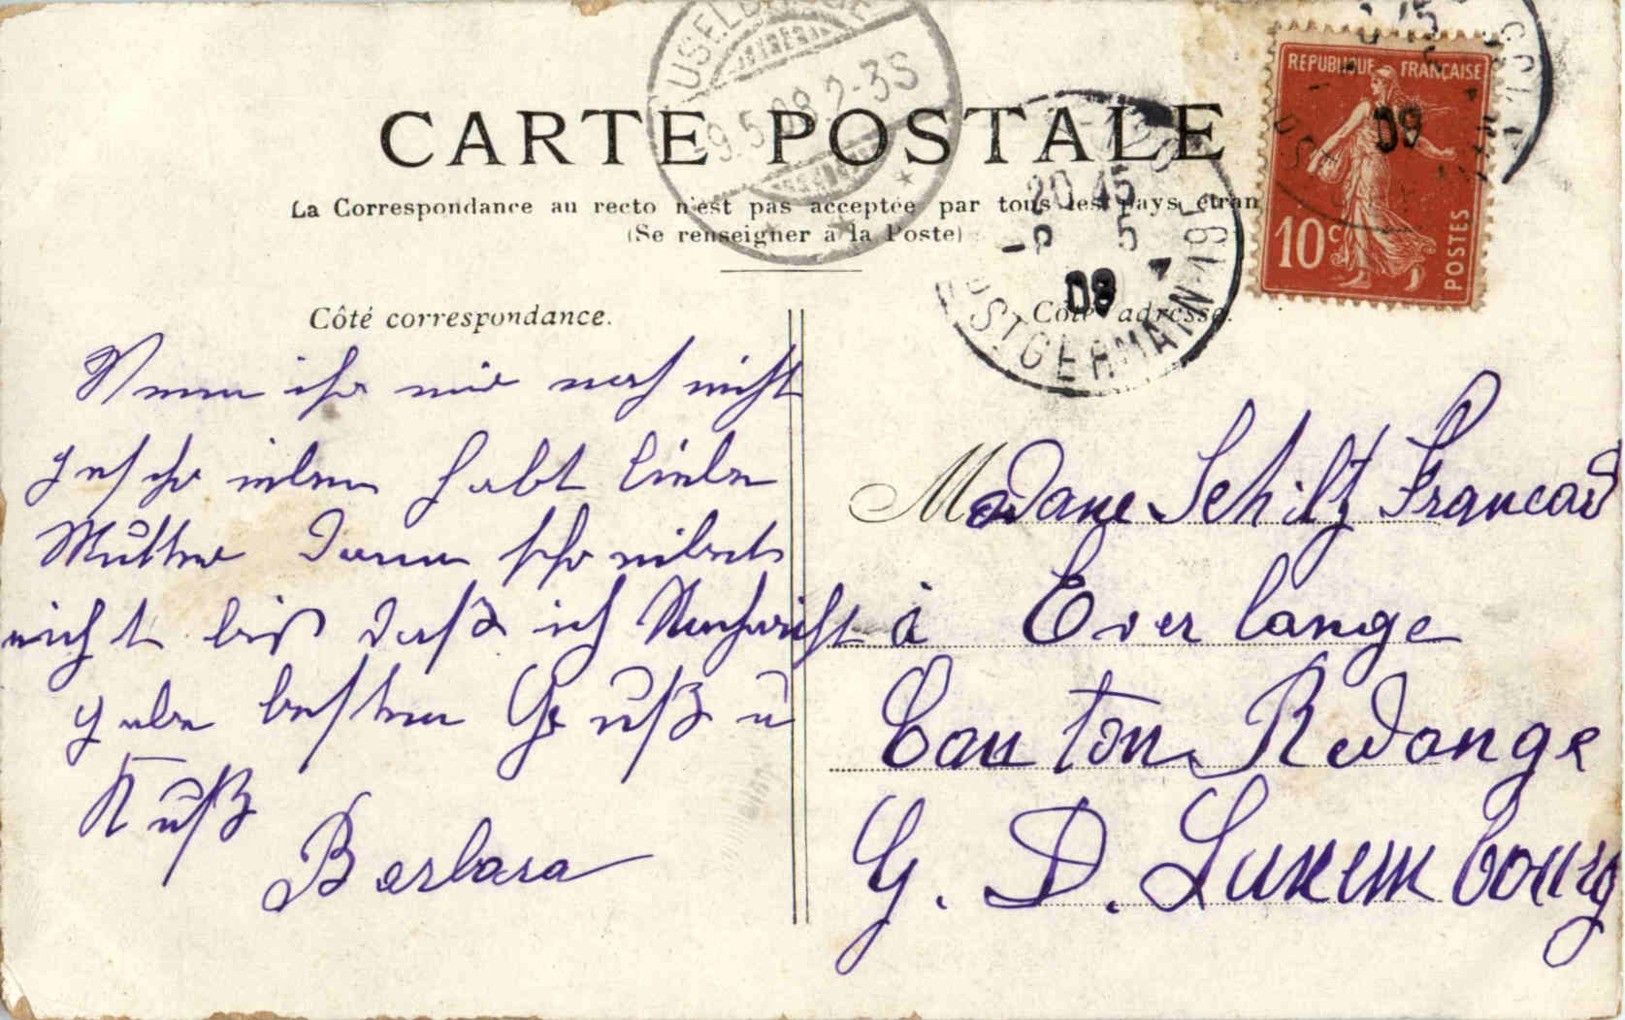 CARTE POSTALE
La Correspondance au recto n'est pas acceptée par tous les pays étran
(Se renseigner à la Poste)
USELDANGE
9.5.08 2-3S
20 45
8 5
09
ST GERMAIN
REPUBLIQUE FRANÇAISE
09
10c
POSTES
Côté correspondance.
Wenn ihr mir noch nicht
geschrieben habt liebe
Mutter dann schreibet
nicht bis daß ich Nachricht
gebe besten Gruß u
Kuß
Barbara
Côté adresse.
Madame Schiltz Francois
à Everlange
Canton Redange
G. D. Luxembourg